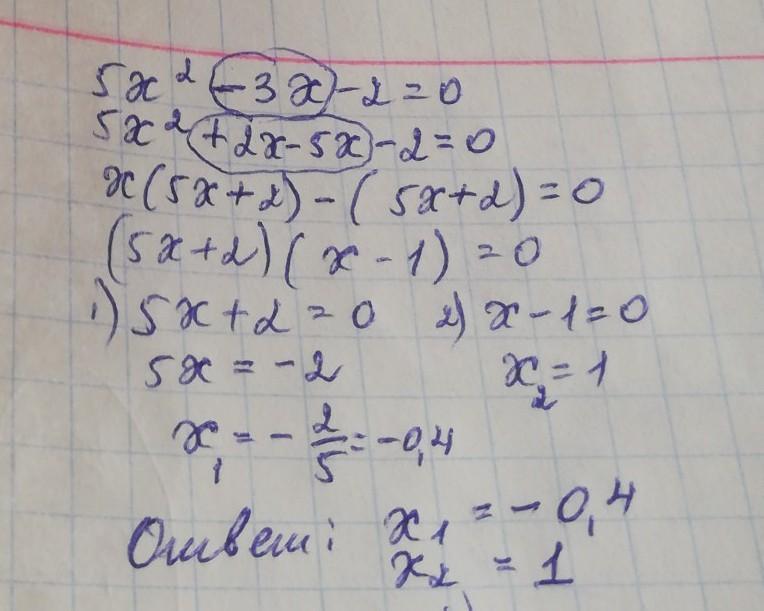 5x² - 3x - 2 = 0
5x² + 2x - 5x - 2 = 0
x(5x+2) - (5x+2) = 0
(5x+2)(x - 1) = 0
1) 5x + 2 = 0 2) x - 1 = 0
5x = - 2 x₂ = 1
x₁ = - 2/5 = -0,4
Ответ: x₁ = - 0,4
x₂ = 1